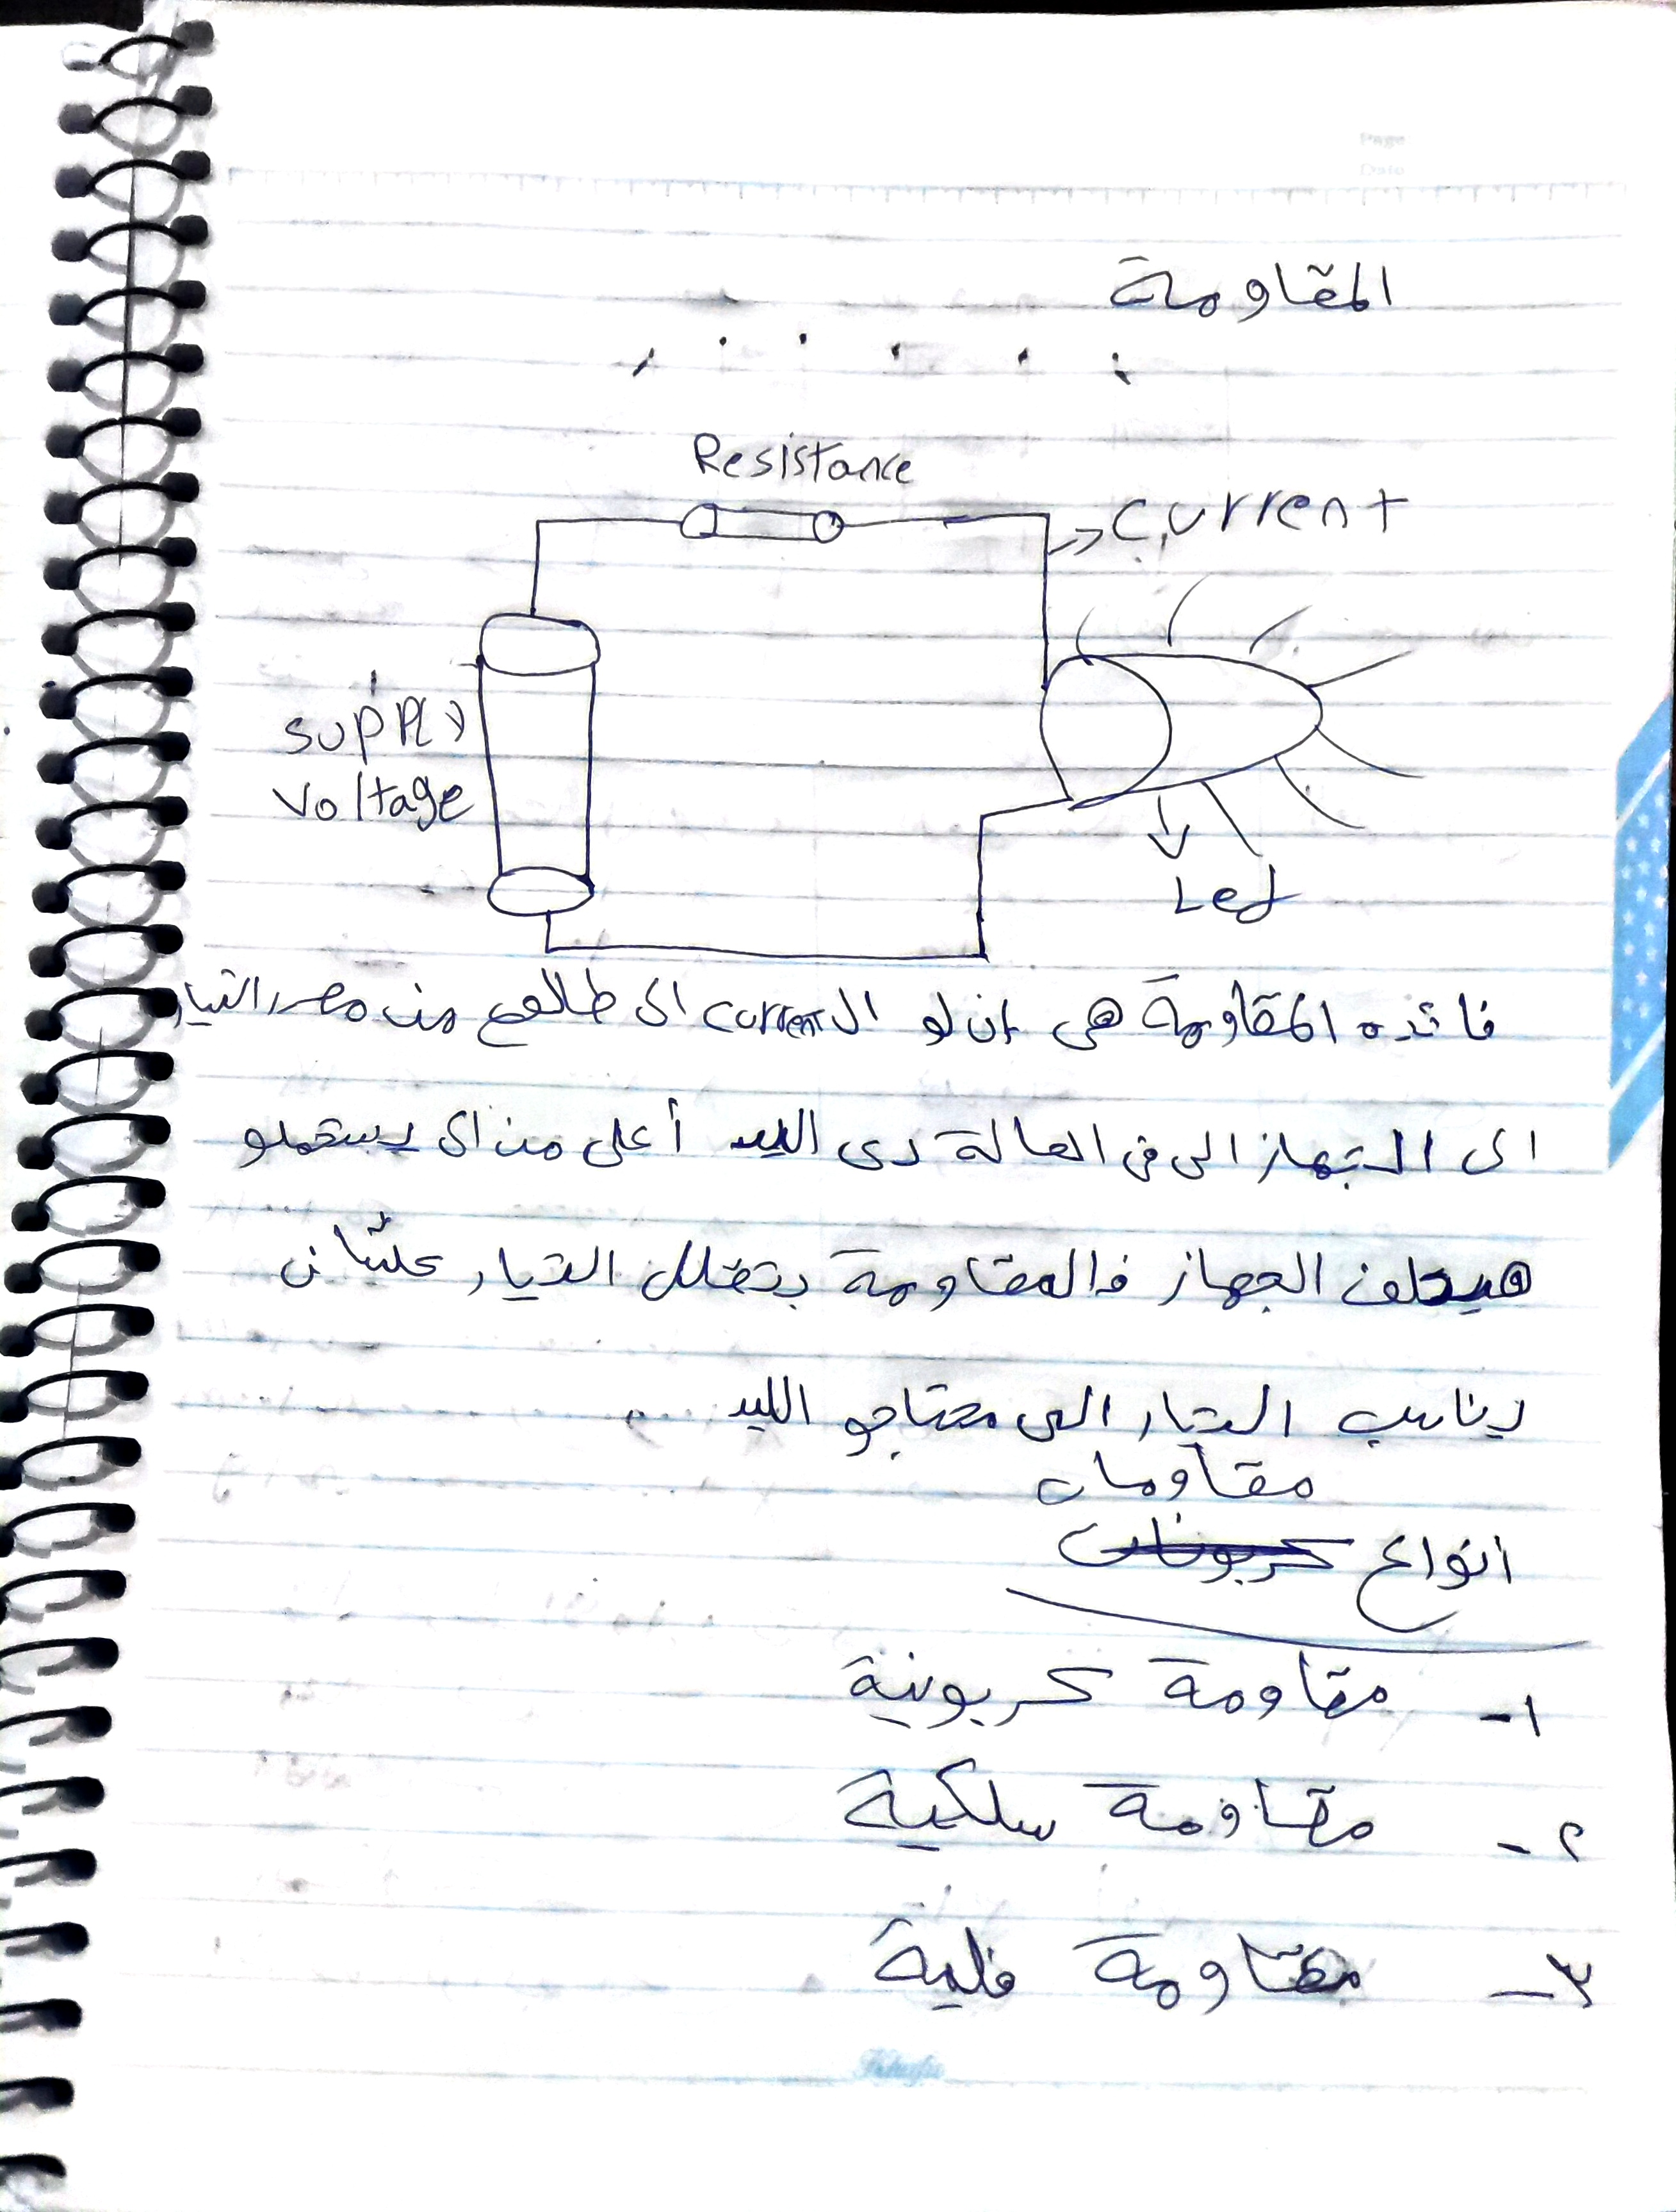 Page
Date
المقاومة
Resistance
current
supply
voltage
Led
فائده المقاومة هي ان لو ال current الى طالع من مصدر التيار
الى الجهاز الى في الحالة دى الليد أعلى من الى يستحملو
هيتلف الجهاز فالمقاومة بتقلل التيار علشان
يناسب التيار الى محتاجو الليد
مقاومات
أنواع كربونات
١- مقاومة كربونية
٢- مقاومة سلكية
٣- مقاومة فلمية